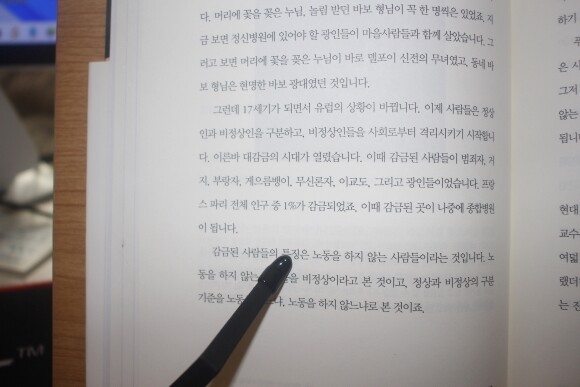 다. 머리에 꽃을 꽂은 누님, 놀림 받던 바보 형님이 꼭 한 명씩은 있었죠. 지
금 보면 정신병원에 있어야 할 광인들이 마을사람들과 함께 살았습니다. 그
러고 보면 머리에 꽃을 꽂은 누님이 바로 델포이 신전의 무녀였고, 동네 바
보 형님은 현명한 바보 광대였던 것입니다.
그런데 17세기가 되면서 유럽의 상황이 바뀝니다. 이제 사람들은 정상
인과 비정상인을 구분하고, 비정상인들을 사회로부터 격리시키기 시작합니
다. 이른바 대감금의 시대가 열렸습니다. 이때 감금된 사람들이 범죄자, 거
지, 부랑자, 게으름뱅이, 무신론자, 이교도, 그리고 광인들이었습니다. 프랑
스 파리 전체 인구 중 1%가 감금되었죠. 이때 감금된 곳이 나중에 종합병원
이 됩니다.
감금된 사람들의 특징은 노동을 하지 않는 사람들이라는 것입니다. 노
동을 하지 않는 비정상이라고 본 것이고, 정상과 비정상의 구분
기준을 노동을 하지 않느냐로 본 것이죠.
하기
은 사
그저
않는
됩니
현대
교수
여덟
했더
는 진
TM